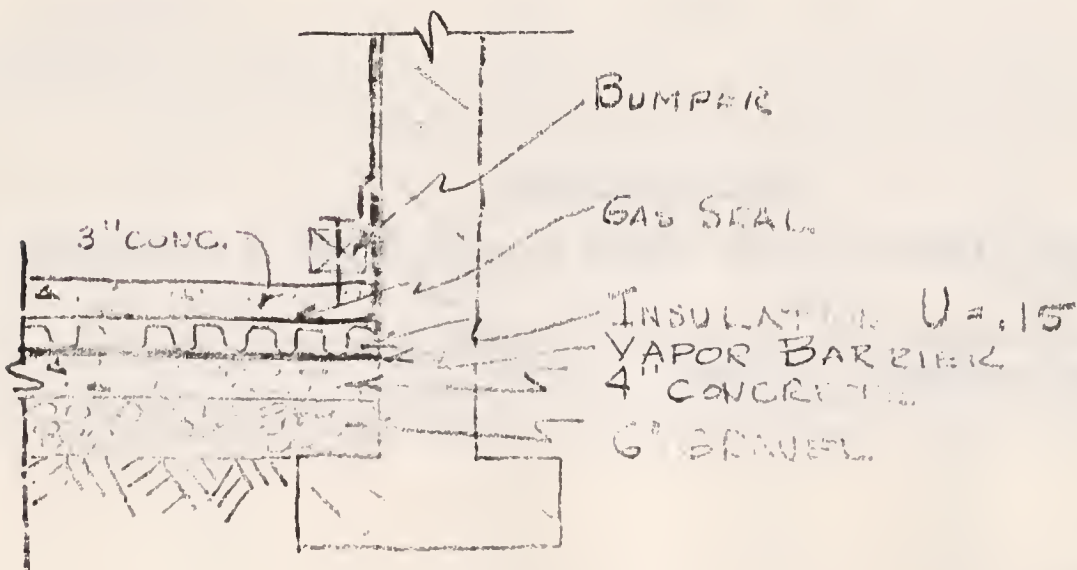 BUMPER
GAS SEAL
3" CONC.
INSULATION U = .15
VAPOR BARRIER
4" CONCRETE
6" GRAVEL